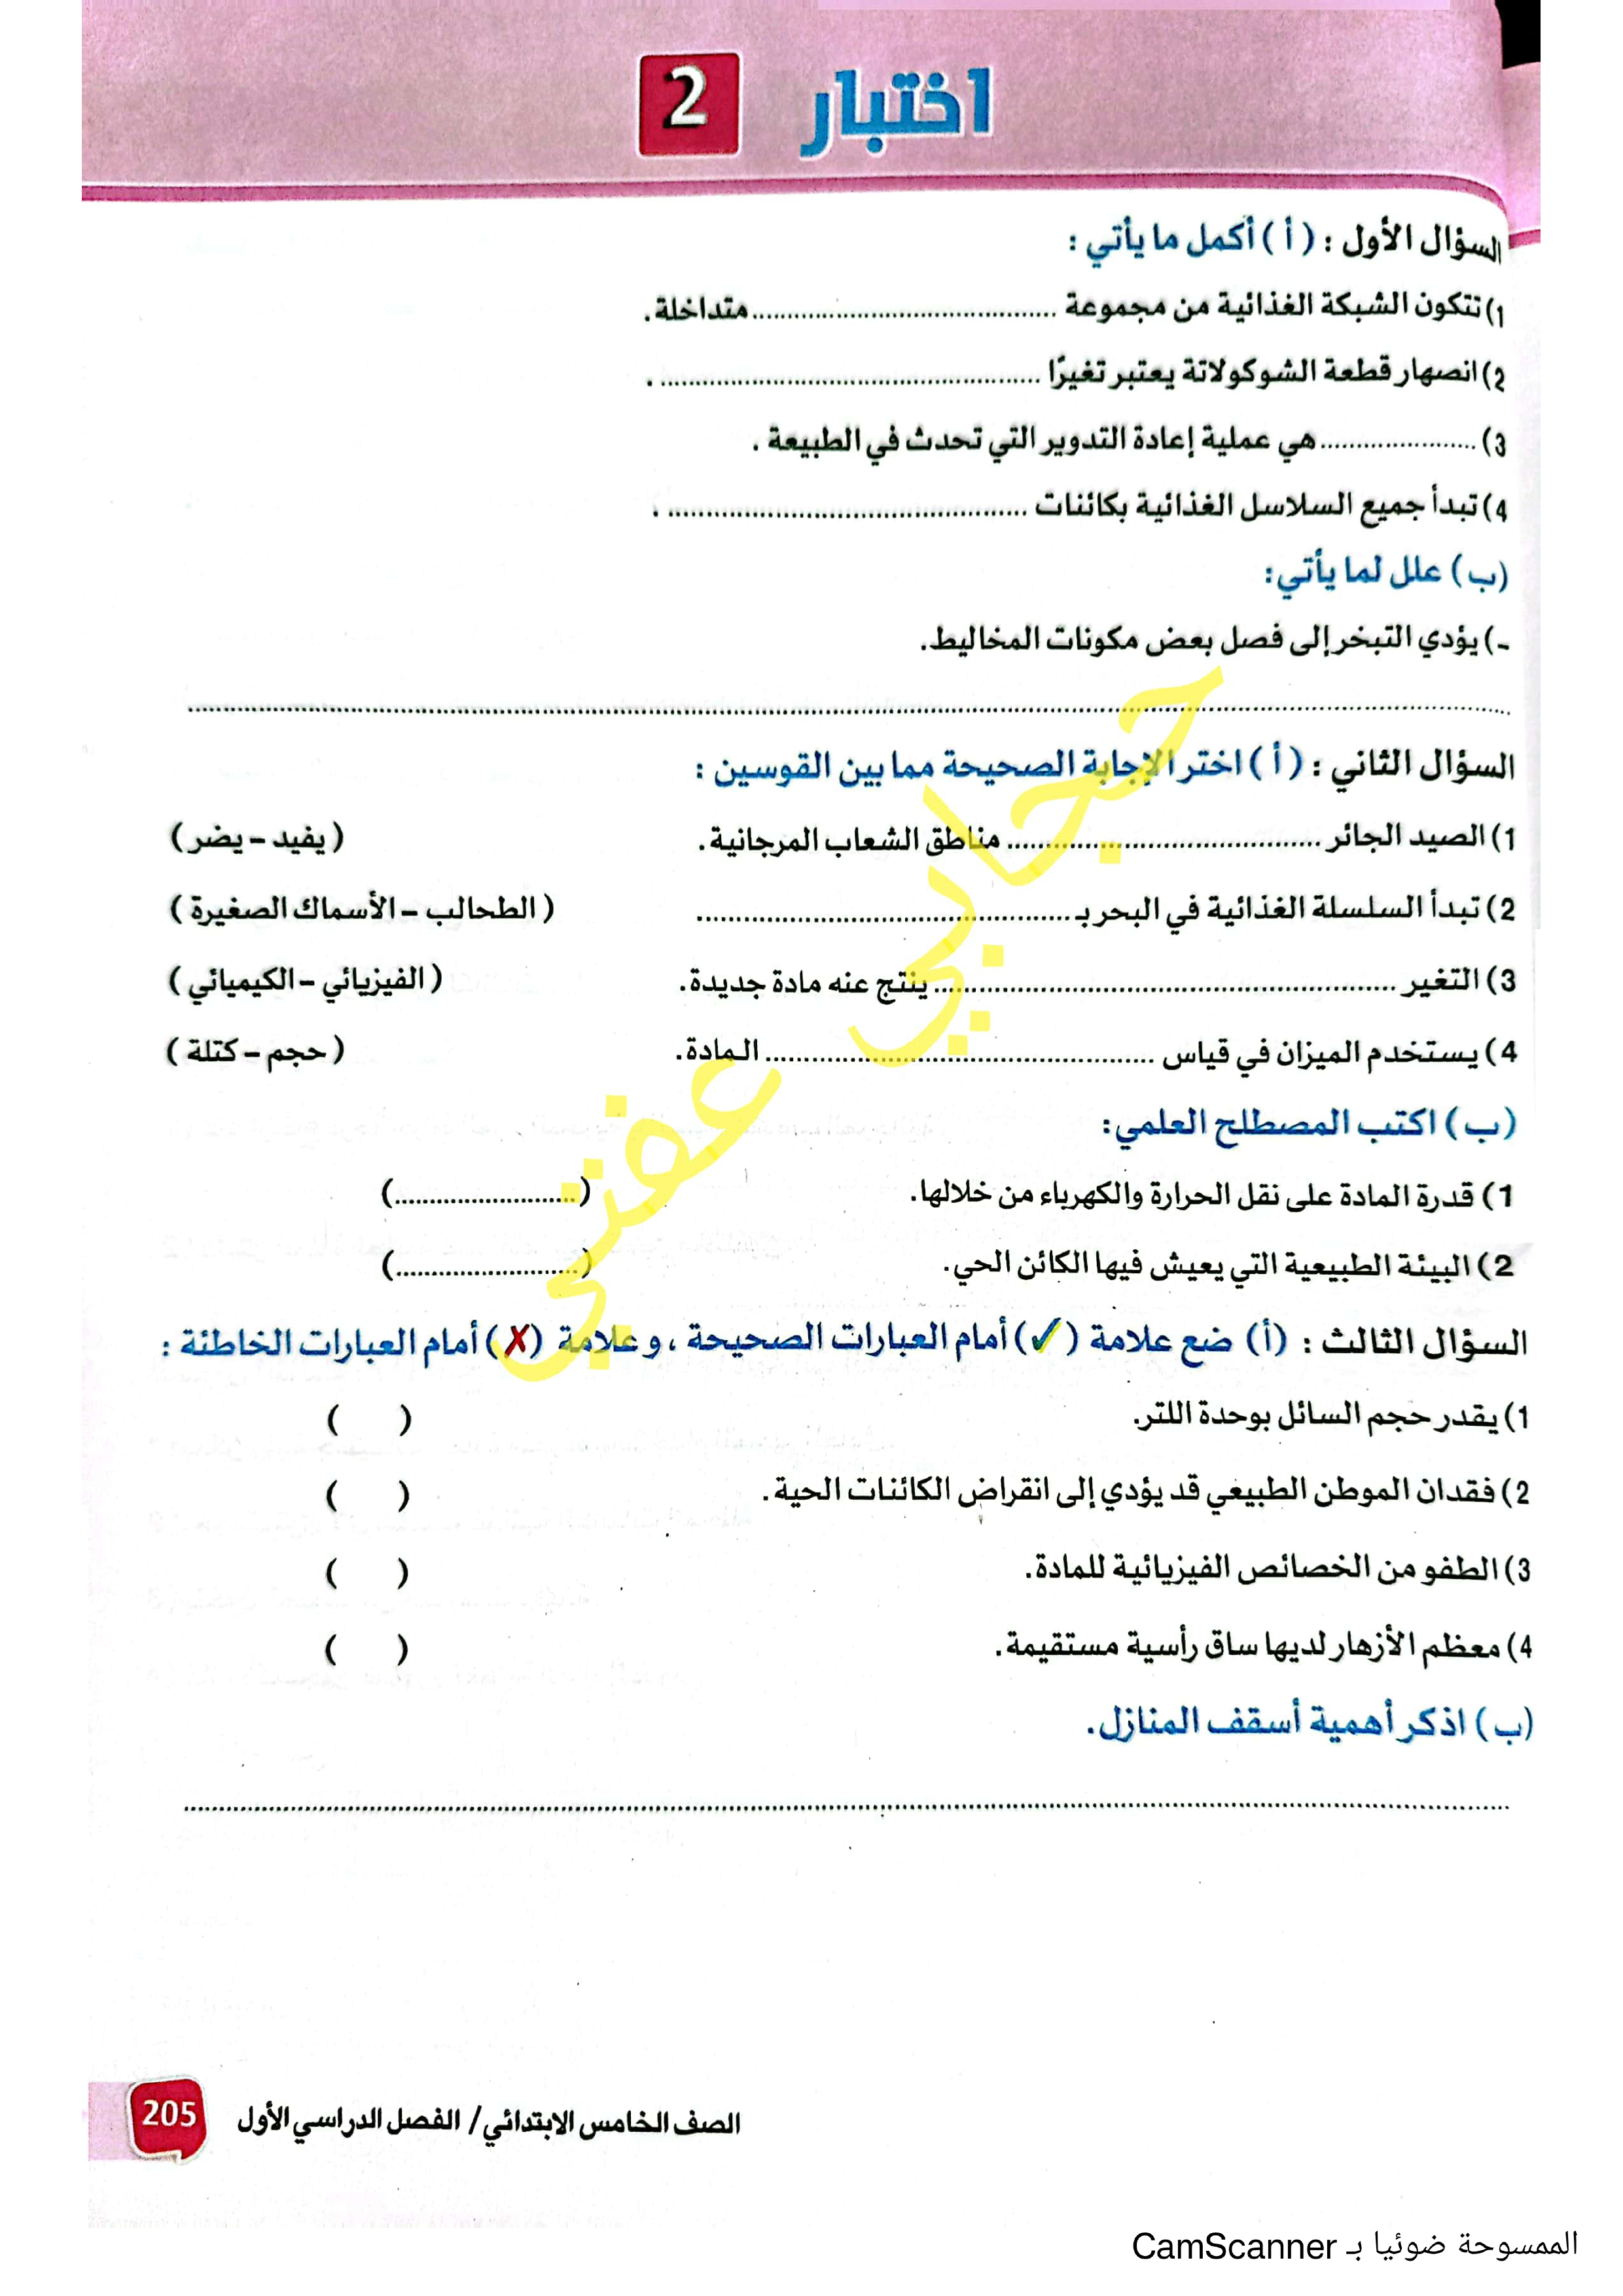 اختبار 2
السؤال الأول : ( أ ) أكمل ما يأتي :
1) تتكون الشبكة الغذائية من مجموعة ........................................ متداخلة.
2) انصهار قطعة الشوكولاتة يعتبر تغيرًا ................................................. .
3) .................... هي عملية إعادة التدوير التي تحدث في الطبيعة .
4) تبدأ جميع السلاسل الغذائية بكائنات ............................................... .
(ب) علل لما يأتي:
-) يؤدي التبخر إلى فصل بعض مكونات المخاليط.
السؤال الثاني : ( أ ) اختر الإجابة الصحيحة مما بين القوسين :
1) الصيد الجائر ......................................... مناطق الشعاب المرجانية. ( يفيد – يضر )
2) تبدأ السلسلة الغذائية في البحر بـ ................................................ ( الطحالب – الأسماك الصغيرة )
3) التغير ............................................................ ينتج عنه مادة جديدة. ( الفيزيائي – الكيميائي )
4) يستخدم الميزان في قياس ................................................... المادة. ( حجم – كتلة )
(ب) اكتب المصطلح العلمي:
1) قدرة المادة على نقل الحرارة والكهرباء من خلالها. (..........................)
2) البيئة الطبيعية التي يعيش فيها الكائن الحي. (..........................)
السؤال الثالث : (أ) ضع علامة (✓) أمام العبارات الصحيحة ، وعلامة (✗) أمام العبارات الخاطئة :
1) يقدر حجم السائل بوحدة اللتر. ( )
2) فقدان الموطن الطبيعي قد يؤدي إلى انقراض الكائنات الحية. ( )
3) الطفو من الخصائص الفيزيائية للمادة. ( )
4) معظم الأزهار لديها ساق رأسية مستقيمة. ( )
(ب) اذكر أهمية أسقف المنازل.
حجابي عفتي
الصف الخامس الابتدائي / الفصل الدراسي الأول 205
الممسوحة ضوئيا بـ CamScanner